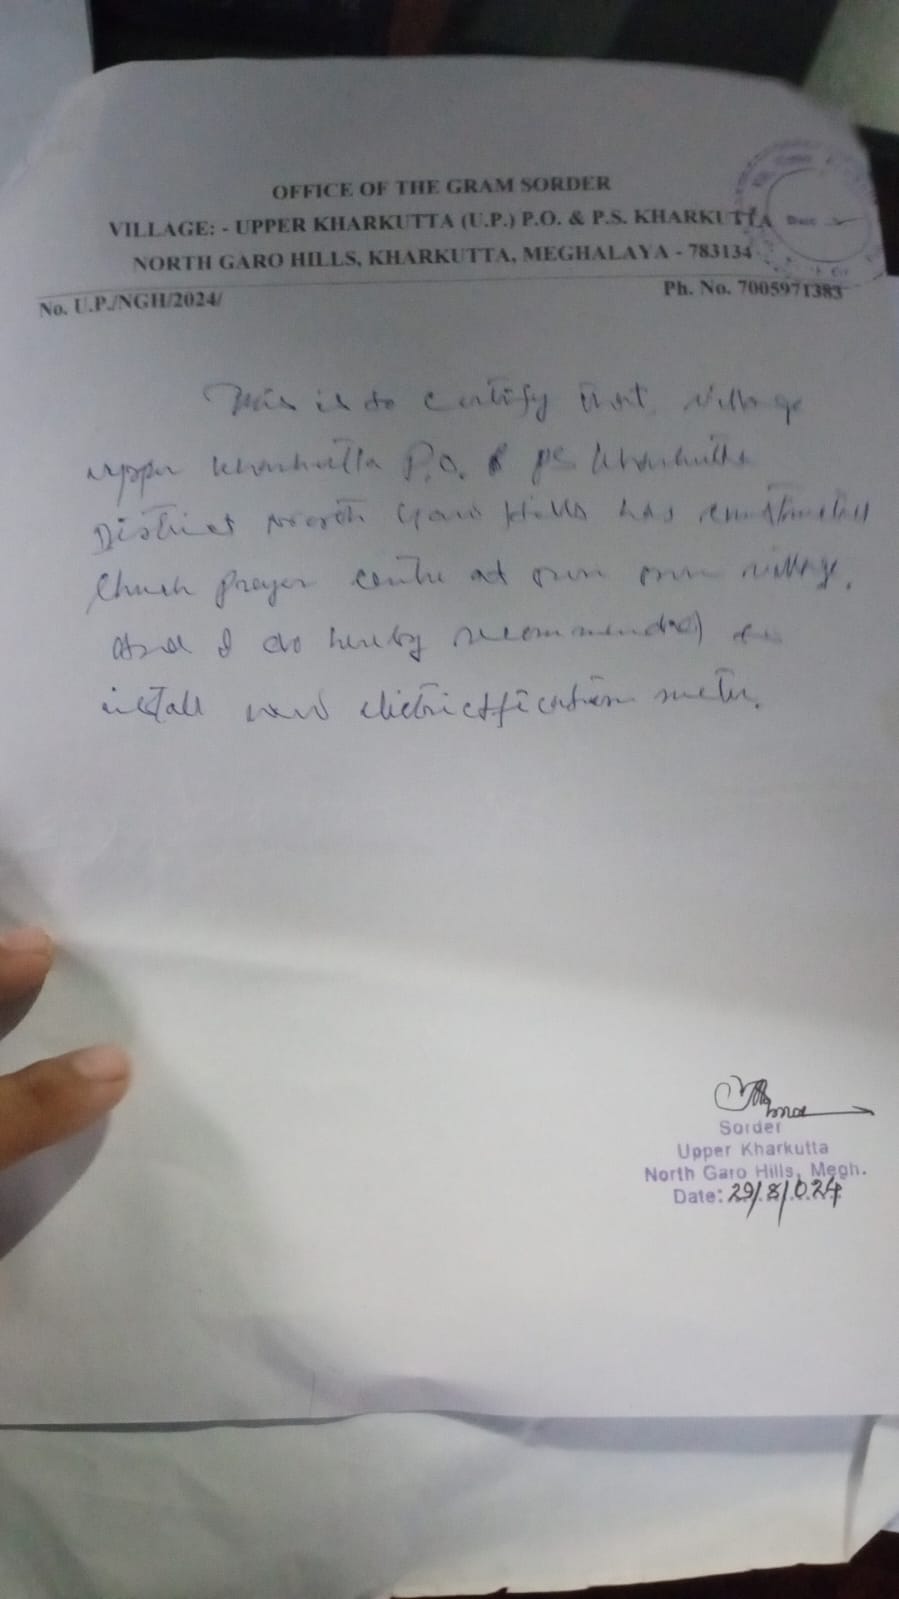 OFFICE OF THE GRAM SORDER
VILLAGE: - UPPER KHARKUTTA (U.P.) P.O. & P.S. KHARKUTTA
NORTH GARO HILLS, KHARKUTTA, MEGHALAYA - 783134
No. U.P./NGH/2024/
Ph. No. 7005971383
This is to certify that village
Upper Kharkutta P.O. & PS Kharkutta
District North Garo Hills has
Church prayer centre at own village.
And I do hereby recommended to
install new electrictfication meter.
Sorder
Upper Kharkutta
North Garo Hills, Megh.
Date: 29/8/024